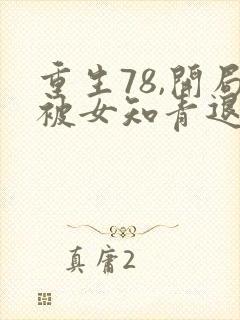 重生78,開局
被女知青退
真庸2